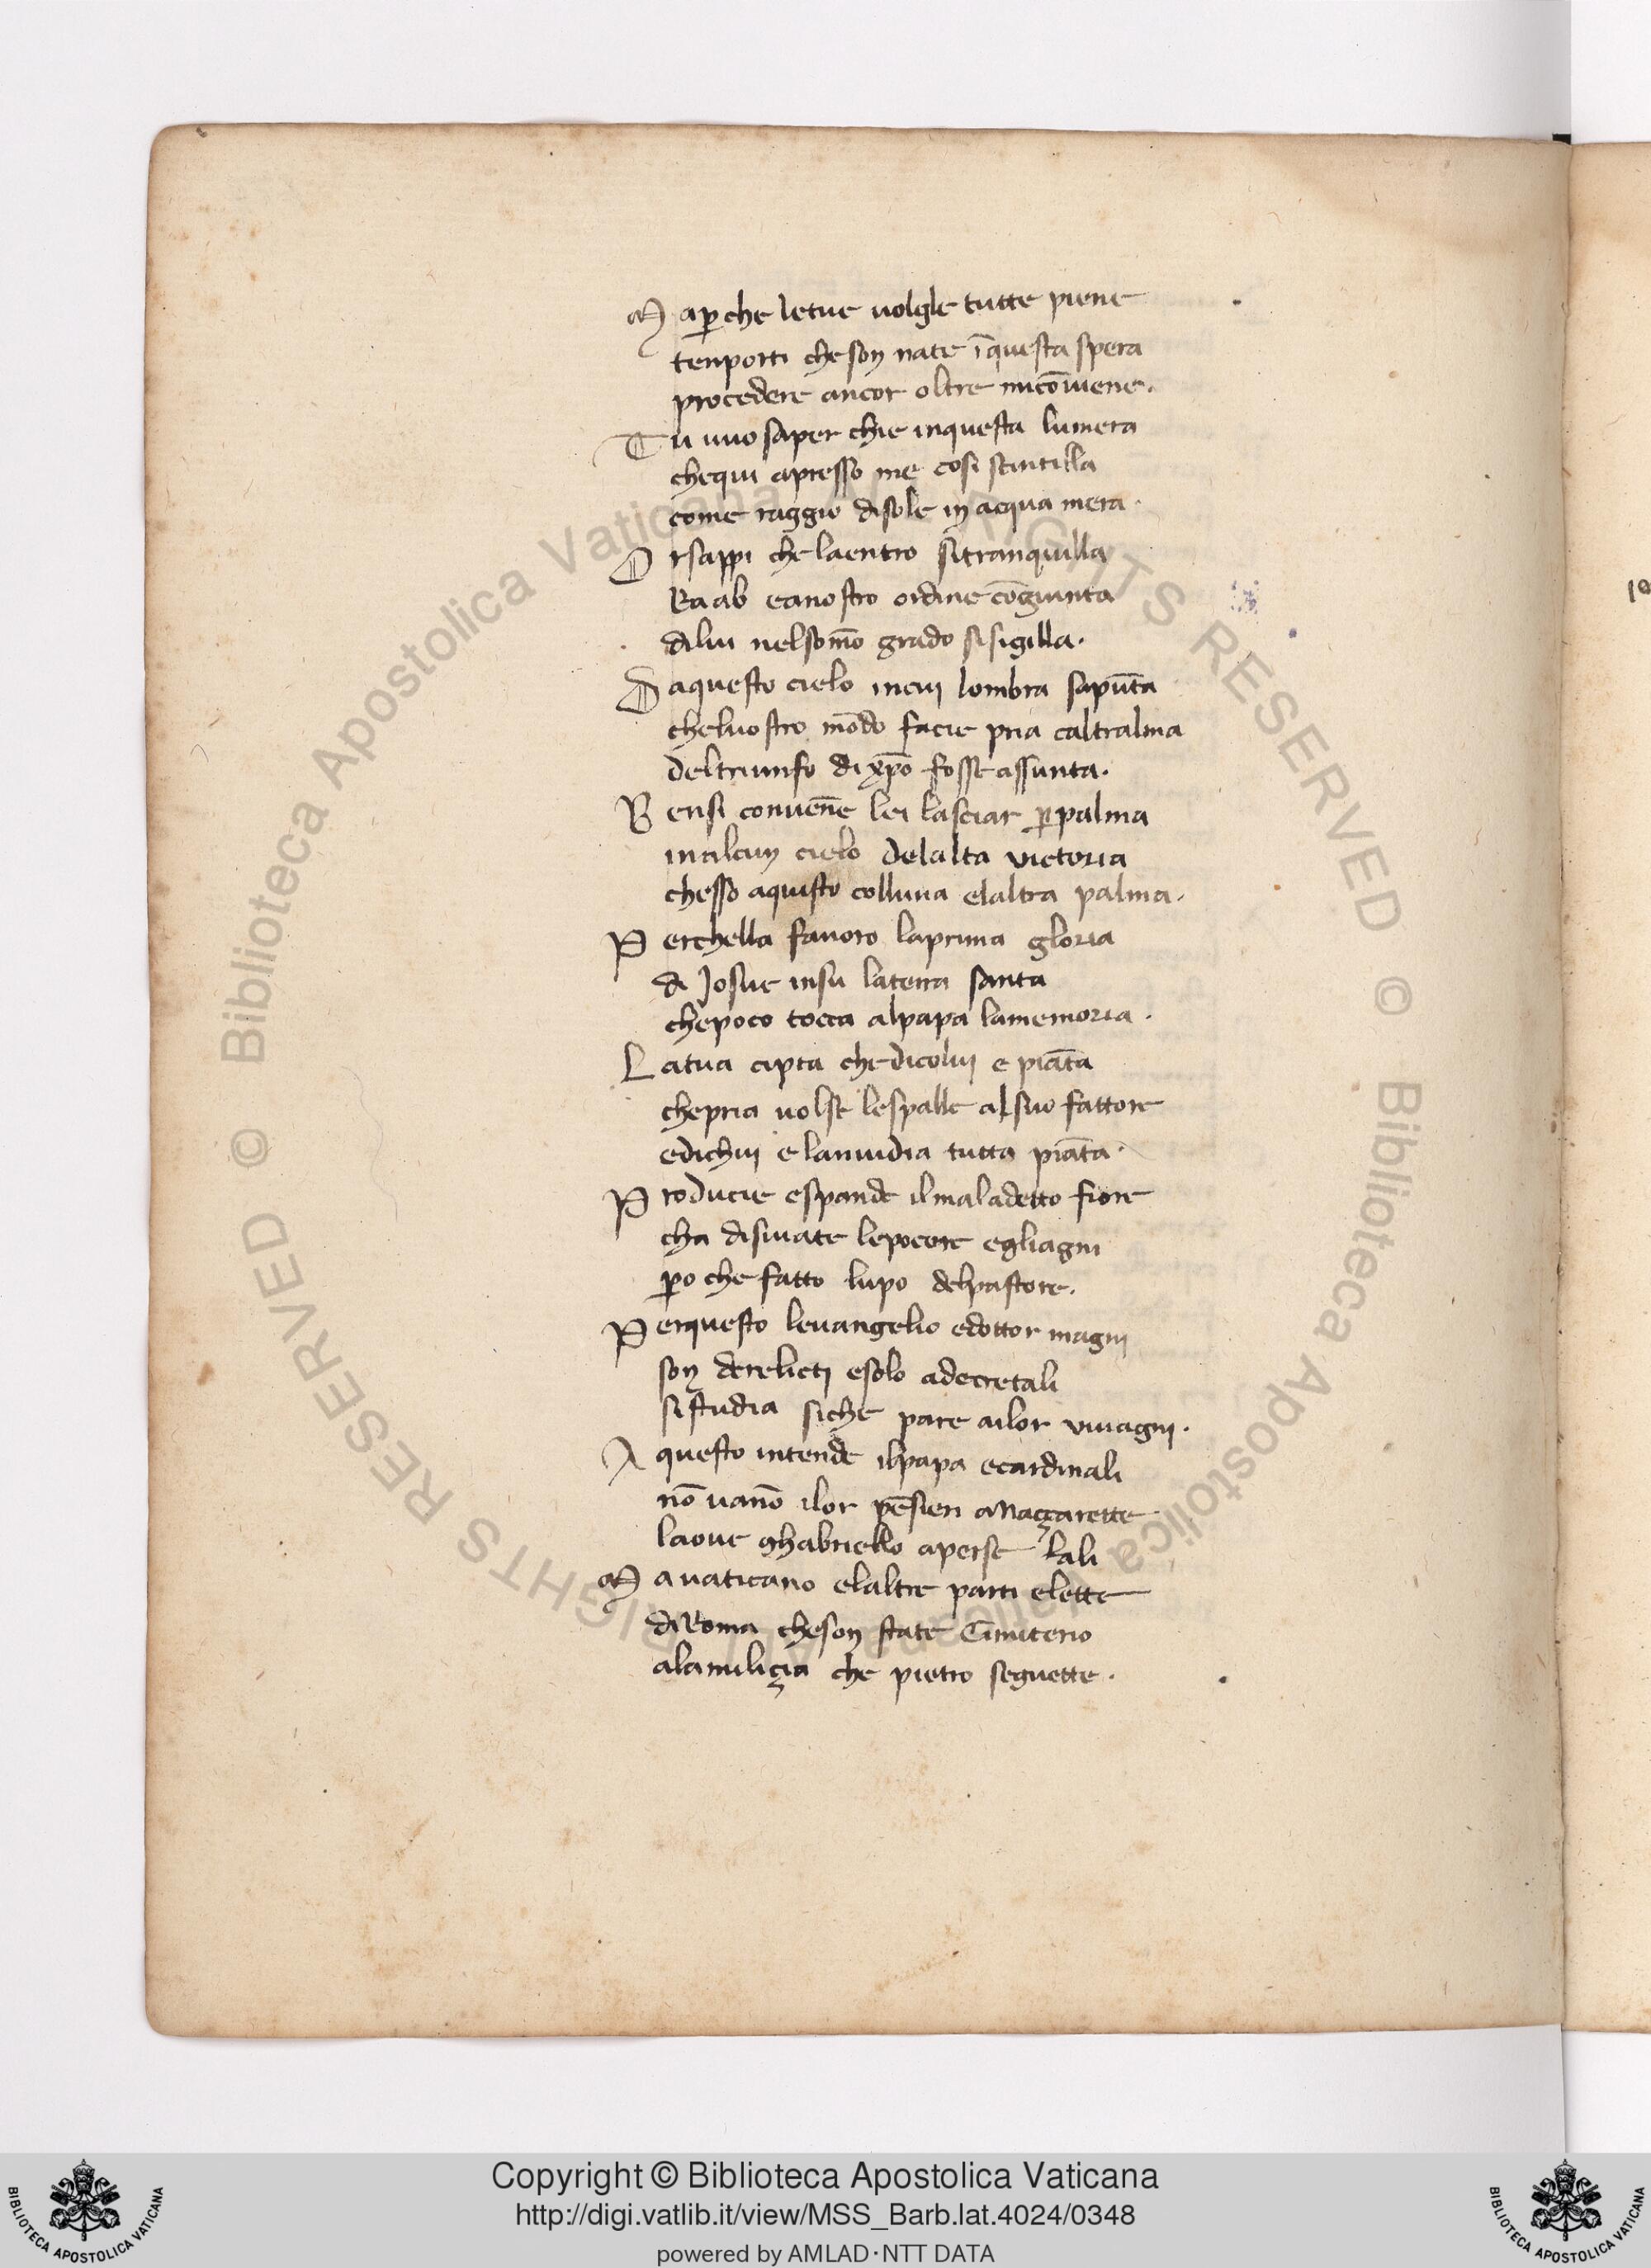 M ap̱che letue uolgle tutte piene
tenporti cheson nate īquesta spera
procedere ancor oltre micōuiene.
Tu uuo saper chie inquesta lumera
chequi apresso me cosi scintilla
come raggio disole in acqua mera.
Orsappi chelaentro sitranquilla
Raab eanostro ordine cōgiunta
dilui nelsomō grado sisigilla.
Daquesto cielo incui lombra sapūta
cheluostro mōdo facie pria caltralma
deltriunfo di xp̄o fosse assunta.
Bensi conuenē lei lasciar p̱palma
inalcun cielo delalta victoria
chesso aquisto colluna elaltra palma.
Perchella fauoro laprima gloria
di Josue insu laterra santa
chepoco tocca alpapa lamemoria.
Latua cipta chedicolui e piāta
chepria uolse lespalle alsuo fattore
edichui e lanuidia tutta piāta.
Producie espande ilmaladetto fiore
cha disuiate lepocore egliagni
p̱o che fatto lupo delpastore.
Perquesto leuangelio edottor magni
son derelicti esolo adecretali
sistudia siche pare ailor viuagni.
Aquesto intende ilpapa ecardinali
nō uanō ilor pēsieri anaççarette
laoue ghabriello aperse lali
Mauaticano elaltre parti elette
diRoma cheson state Cimiterio
alamiliçia che pietro seguette.
10
© Biblioteca Apostolica Vaticana ALL RIGHTS RESERVED
© Biblioteca Apostolica Vaticana ALL RIGHTS RESERVED
Copyright © Biblioteca Apostolica Vaticana
http://digi.vatlib.it/view/MSS_Barb.lat.4024/0348
powered by AMLAD·NTT DATA
BIBLIOTECA APOSTOLICA VATICANA
BIBLIOTECA APOSTOLICA VATICANA